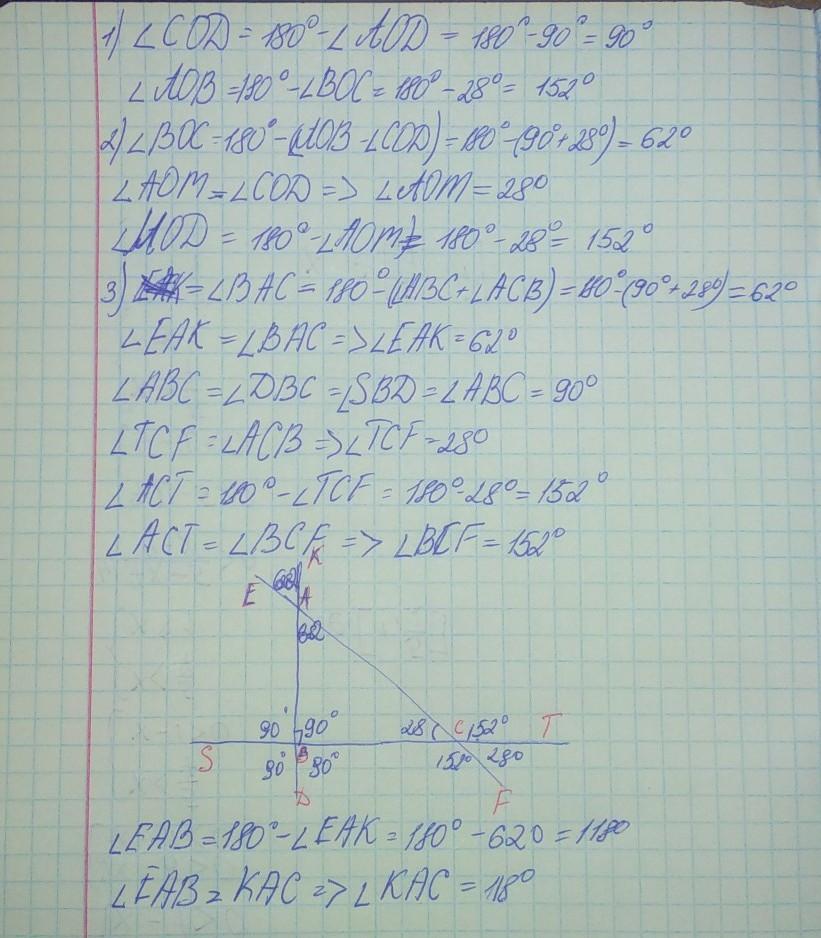 1) ∠COD = 180° - ∠AOD = 180° - 90° = 90°
∠AOB = 180° - ∠BOC = 180° - 28° = 152°
2) ∠BOC = 180° - (AOB - ∠COD) = 180° - (90° + 28°) = 62°
∠AOM = ∠COD => ∠AOM = 28°
∠MOD = 180° - ∠AOM = 180° - 28° = 152°
3) = ∠BAC = 180° - (ABC + ∠ACB) = 180° - (90° + 28°) = 62°
∠EAK = ∠BAC => ∠EAK = 62°
∠ABC = ∠DBC = ∠SBD = ∠ABC = 90°
∠TCF = ∠ACB => ∠TCF = 28°
∠ACT = 180° - ∠TCF = 180° - 28° = 152°
∠ACT = ∠BCF => ∠BCF = 152°
K
E 62 A
62
90° 90° 28 C 152° T
S B
90° 90° 152° 28°
D F
∠EAB = 180° - ∠EAK = 180° - 62° = 118°
∠EAB = KAC => ∠KAC = 118°